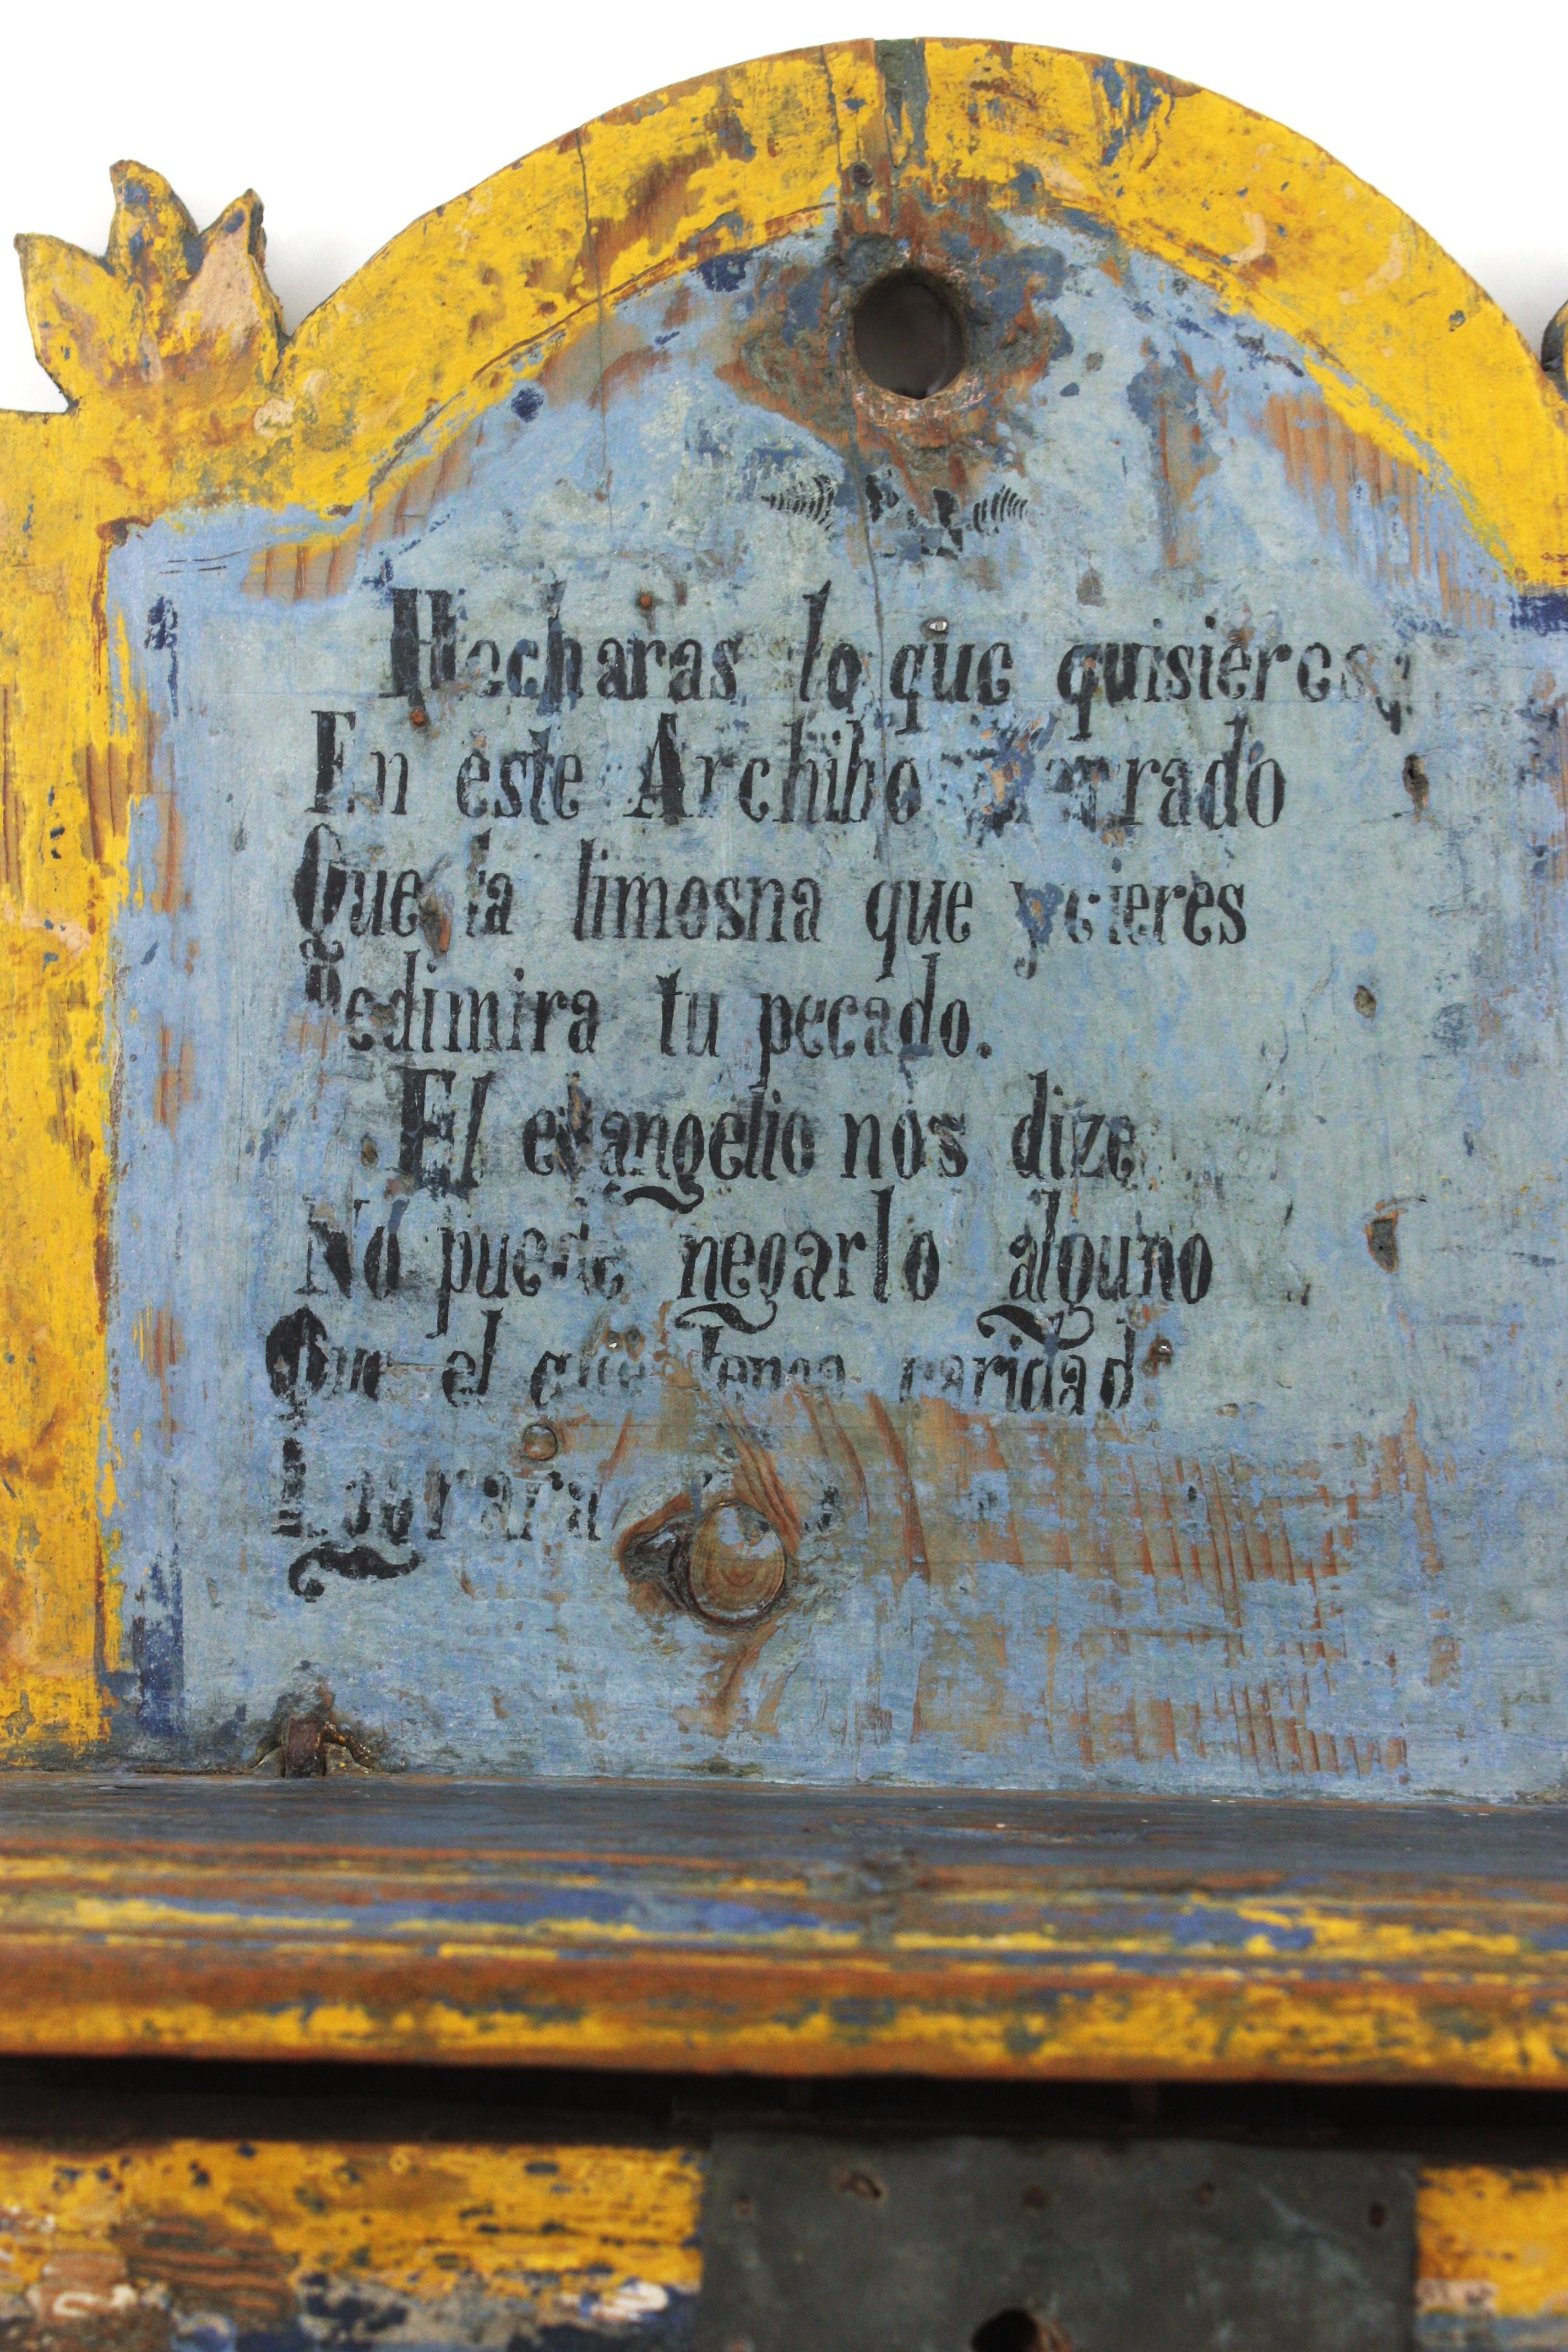 Hecharas lo que quisieres,
En este Archibo
Que la limosna que ycieres
Redimira tu pecado.
El evangelio nos dize
No puede negarlo alguno
Que el que tenga caridad
Lograra